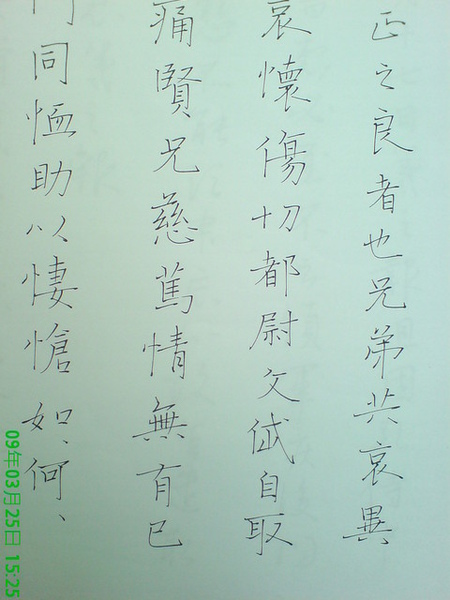 正之良者也兄弟共哀異
哀懷傷切都尉文自取
痛賢兄慈篤情無有已
門同恤助以悽愴如、何、
09年03月25日 15:25